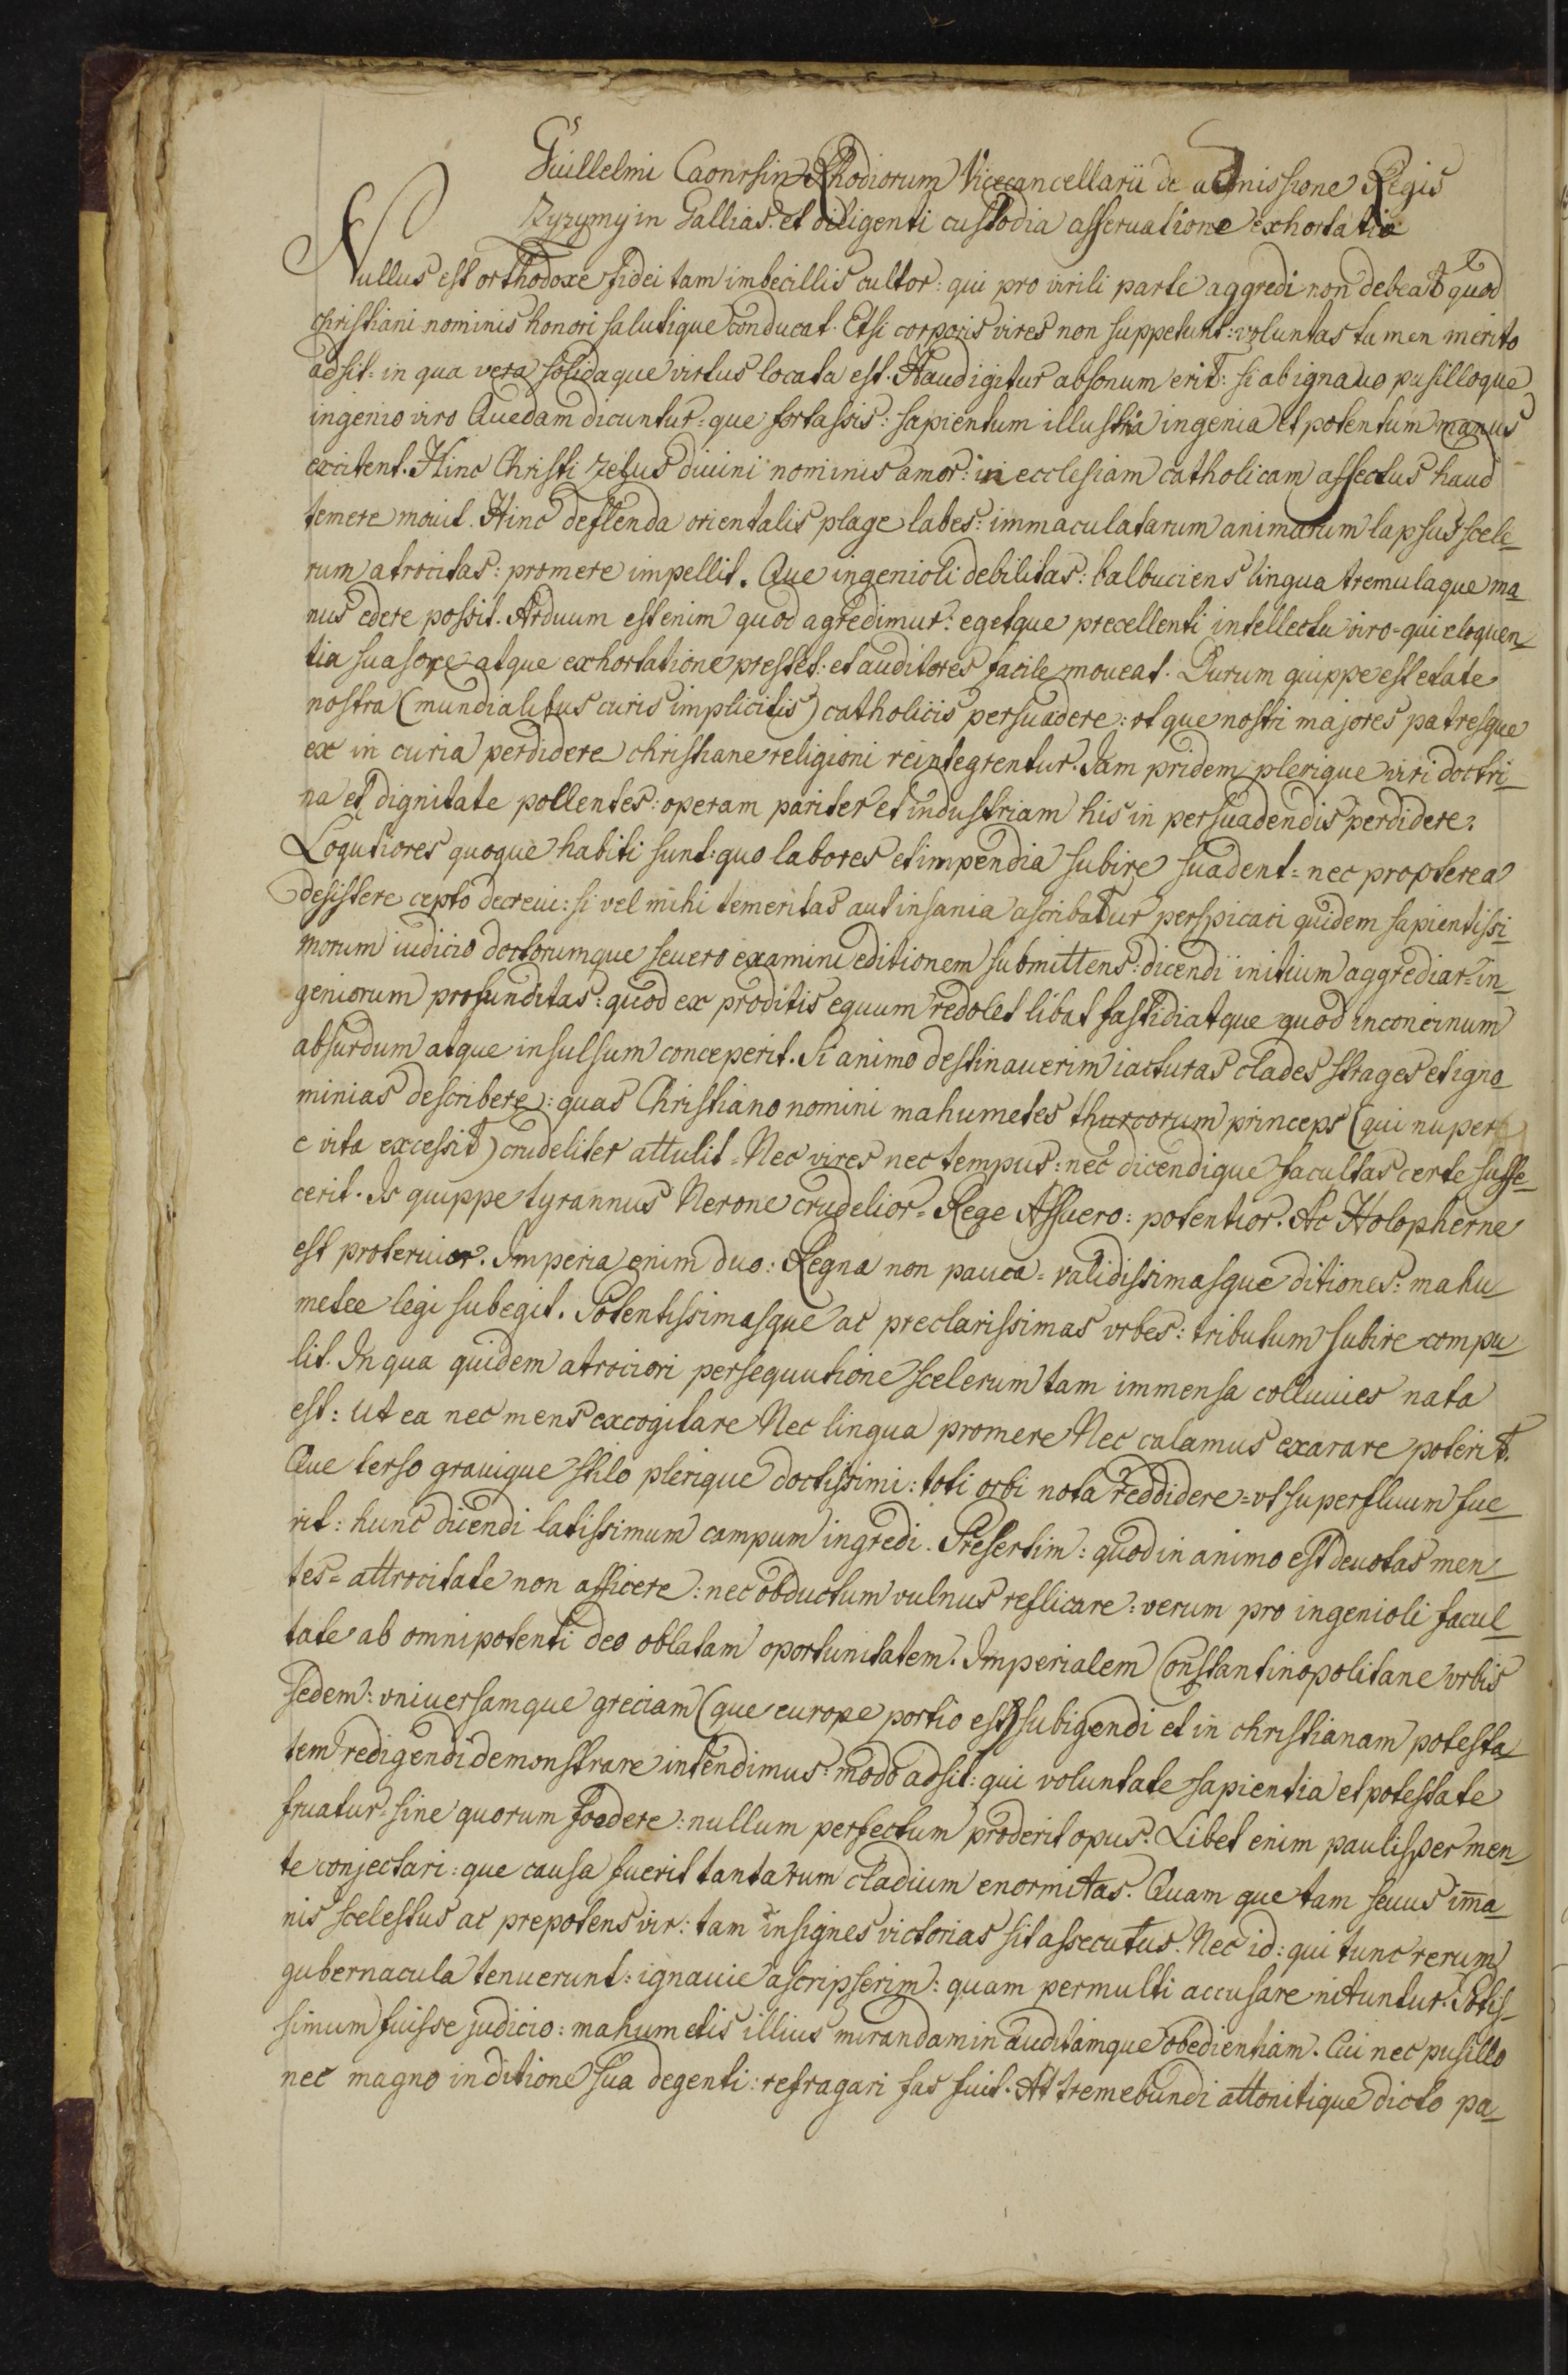 Guillelmi Caonrsin Rhodiorum Vicecancellarii de admissione Regis
Zyzymy in Gallias: et diligenti custodia asseruatione exhortatio
Nullus est orthodoxe fidei tam imbecillis cultor: qui pro virili parte aggredi non debeat quod
christiani nominis honori salutique conducat. Etsi corporis vires non suppetunt: voluntas tamen merito
adsit: in qua vera solidaque virtus locata est. Haud igitur absonum erit: si ab ignauo pusilloque
ingenio viro Quedam dicuntur: que fortassis: sapientum illustria ingenia et potentum manus
excitent. Hinc Christi zelus diuini nominis amor: in ecclesiam catholicam affectus haud
temere mouit. Hinc deflenda orientalis plage labes: immaculatarum animarum lapsus scele-
rum atrocitas: promere impellit. Que ingenioli debilitas: balbuciens lingua tremulaque ma-
nus edere possit. Arduum est enim quod agredimur: egetque precellenti intellectu viro - qui eloquen-
tia suasore atque exhortatione prestet: et auditores facile moueat. Durum quippe est etate
nostra (mundialibus curis implicitis) catholicis persuadere: ut que nostri majores patresque
ex in curia perdidere christiane religioni reintegrentur. Jam pridem plerique viri doctri-
na et dignitate pollentes: operam pariter et industriam his in persuadendis perdidere:
Loqutiores quoque habiti sunt: quo labores et impendia subire suadent: nec propterea
desistere cepto decreui: si vel mihi temeritas aut insania ascribatur perspicaci quidem sapientissi-
morum iudicio doctorumque seuero examini editionem submittens: dicendi initium aggrediar: in-
geniorum profunditas: quod ex proditis equum redolet libat fastidiatque quod inconcinum
absurdum atque insulsum conceperit. Si animo destinauerim iacturas clades strages et igno-
minias describere: quas Christiano nomini mahumetes thurcorum princeps (qui nuper
e vita excessit) crudeliter attulit. Nec vires nec tempus: nec dicendique facultas certe suffe-
cerit. Is quippe tyrannus Nerone crudelior. Rege Assuero: potentior. Ac Holopherne
est proteruior. Imperia enim duo: Regna non pauca: validissimasque ditiones: mahu-
metee legi subegit. Potentissimasque ac preclarissimas vrbes: tributum subire compu-
lit. In qua quidem atrociori persequutione scelerum tam immensa colluuies nata
est: ut ea nec mens excogitare Nec lingua promere Nec calamus exarare poterit.
Que terso grauique stilo plerique doctissimi: toti orbi nota reddidere: vt superfluum fue-
rit: hunc dicendi latissimum campum ingredi. Presertim: quod in animo est deuotas men-
tes: attrocitate non afficere: nec obductum vulnus reflicare: verum pro ingenioli facul-
tate ab omnipotenti deo oblatam oportunitatem. Imperialem Constantinopolitane vrbis
sedem: vniuersamque greciam (que europe portio est) subigendi et in christianam potesta-
tem redigendi demonstrare intendimus: modo adsit: qui voluntate sapientia et potestate
fruatur: sine quorum foedere: nullum perfectum proderit opus. Libet enim paulisper men-
te conjectari: que causa fuerit tantarum cladium enormitas. Quam que tam seuus im̄a-
nis scelestus ac prepotens vir: tam insignes victorias sit assecutus. Nec id: qui tunc rerum
gubernacula tenuerunt: ignauie ascripserim: quam permulti accusare nituntur. Potis-
simum fuisse judicio: mahumetis illius mirandam inauditamque obedientiam. Cui nec pusillo
nec magno in ditione sua degenti: refragari fas fuit. At tremebundi attonitique dicto pa-